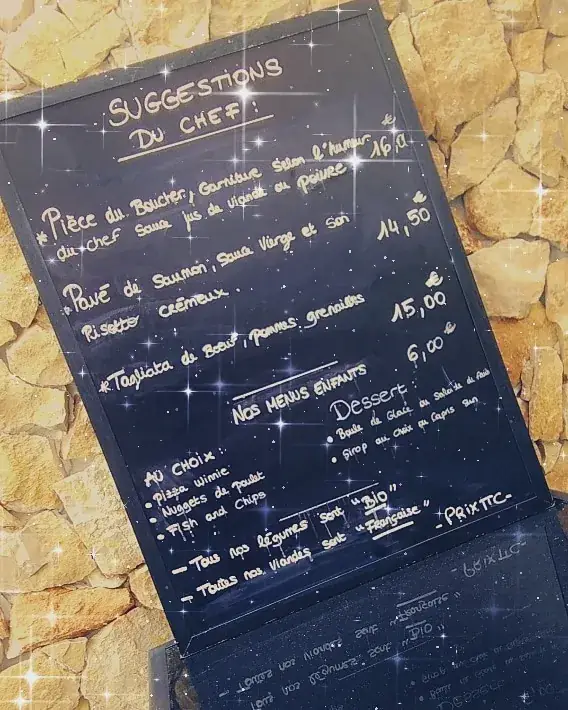 SUGGESTIONS
DU CHEF :
* Pièce du Boucher, Garniture selon l'humeur
du chef Sauce jus de viande ou poivre 16,0 €
* Pavé de Saumon, Sauce Vierge et son
Risotto crémeux. 14,50 €
* Tagliata de Boeuf, pommes grenailles 15,00 €
NOS MENUS ENFANTS 6,00 €
AU CHOIX :
• Pizza Winnie
• Nuggets de Poulet
• Fish and Chips
Dessert :
• Boule de Glace ou Salade de fruits
• Sirop au choix ou Capri Sun
- Tous nos légumes sont "BIO"
- Toutes nos Viandes sont "Française"
- PRIX TTC-